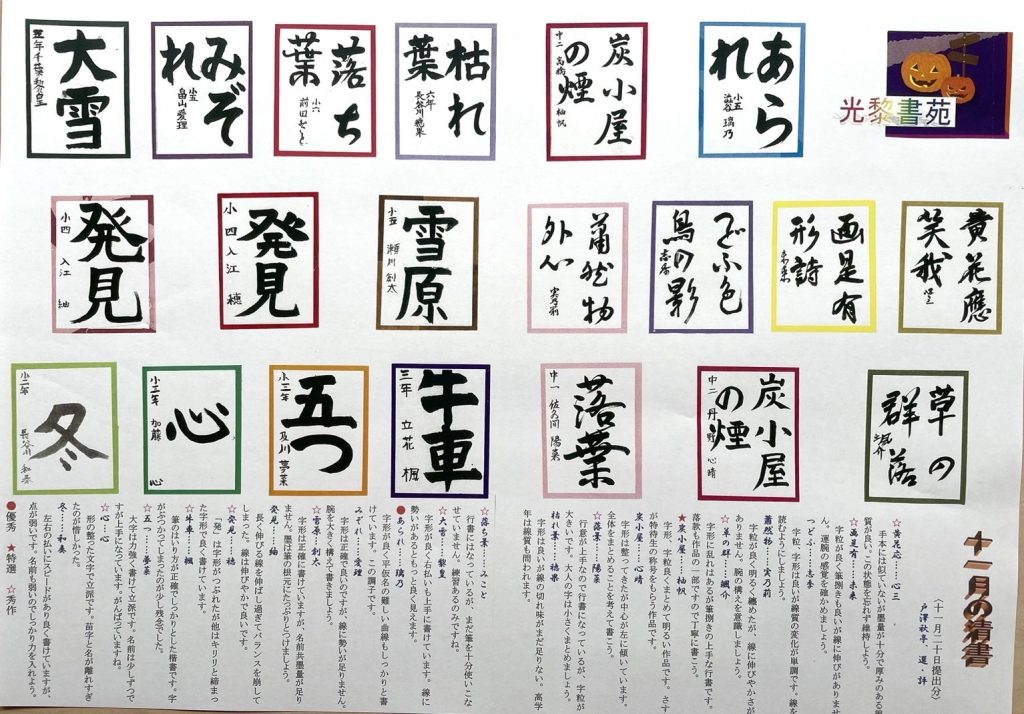 光黎書苑
あら
れ
小五
澁谷 璃乃
炭小屋
の煙
中二 高橋 柚帆
枯れ
葉
六年
長谷川穂果
落ち
葉
小六
前田みこと
みぞ
れ
小五
畠山愛理
大雪
五年千葉
黄花應
笑我
心三
画是有
形詩
未来
つどふ色
鳥の影
志季
蕭然物
外心
実乃莉
雪原
小五 瀬川 創太
発見
小四 入江 穂
発見
小四 入江 紬
草の
群落
颯介
炭小屋
の煙
中二 丹野 心晴
落葉
中一 佐久間 陽菜
牛車
三年 立花 楓
五つ
小三年 及川 夢菜
心
小二年 加藤 心
冬
小二年 長谷川 和奏
十一月の清書
(十一月二十日提出分)
戸澤秋亭、選・評
☆黄花応……心三
手本には似ていないが墨量が十分で厚みのある線
質が良い。この状態を忘れず維持しよう。
☆画是有……未来
字粒、字形良く筆捌きも良いが線に伸びがありませ
ん。運腕の感覚を確かめましょう。
つとふ……志季
字粒、字形は良いが線質の変化が単調です。線を
読むようにしましょう。
蕭然物……実乃莉
字粒が良く明るく纏めたが、線に伸びやかさが
ありません。腕の構えを意識しましょう。
☆草の群……颯介
字形に乱れはあるが筆捌きの上手な行書です。
落款も作品の一部ですので丁寧に書こう。
★炭小屋……柚帆
字形、字粒良くまとめて明るい作品です。さす
が特待生の称号をもらう作品です。
炭小屋……心晴
字形は整ってきたが中心が左に傾いています。
全体をまとめることを考えて書こう。
☆落葉……陽菜
行意が上手なので行書になっているが、字粒が
大きいです。大人の字は小さくまとめましょう。
枯れ葉……穂果
字形は良いが線の切れ味がまだ足りない。高学
年は線質も問われます。
☆落ち葉……みこと
行書にはなっているが、まだ筆を十分使いこな
せていません。練習あるのみですね。
☆大雪……黎皇
字形が良く右払いも上手に書けています。線に
勢いがあるともっと良く見えます。
●あられ……璃乃
字形が良く平仮名の難しい曲線もしっかりと書
けています。この調子です。
みぞれ……愛理
字形は正確で良いのですが、線に勢いが足りません。
腕を大きく構えて書きましょう。
☆雪原……創太
字形は正確に書けていますが、名前共墨量が足り
ません。墨は筆の根元にたっぷりとつけましょう。
発見……紬
長く伸びる線を伸ばし過ぎてバランスを崩して
しまった。線は伸びやかで良いです。
☆発見……穂
「発」は字形がつぶれたが他はキリリと締まっ
た字形で良く書けています。
☆牛車……楓
筆のはいり方が正確でしっかりとした楷書です。字
がぶつかってしまったのが少し残念でした。
☆五つ……夢菜
大字は力強く書けて立派です。名前は少しずつで
すが上手になっています。がんばっていますね。
☆心……心
形の整った文字で立派です。苗字と名が離れすぎ
たのが惜しかった。
冬……和奏
左右の払いにスピードがあり良く書けていますが、
点が弱いです。名前も弱いのでしっかり力を入れよう。
●優秀 ★特選 ☆秀作